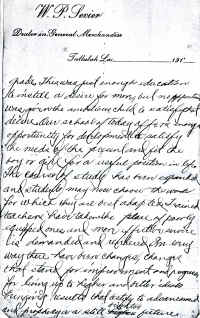 W. P. Sevier
Dealer in General Merchandise
Tallulah La. 191
grade. There was just enough education
to instill a desire for more, but no opportunity
was given the ambitious child to satisfy that
desire. Our schools of today offer enough
opportunity for development to satisfy
the needs of the present and fit the
boy or girl for a useful position in life.
The course of study has been expanded
and students may now choose the work
for which they are best adapted. Trained
teachers have taken the place of poorly
equipped ones and more efficient service
is demanded and rendered. In every
way there have been changes, changes
that stand for improvement and progress,
for living up to higher and better ideals
bringing results that testify to advancement
and prophesy a still brighter picture.